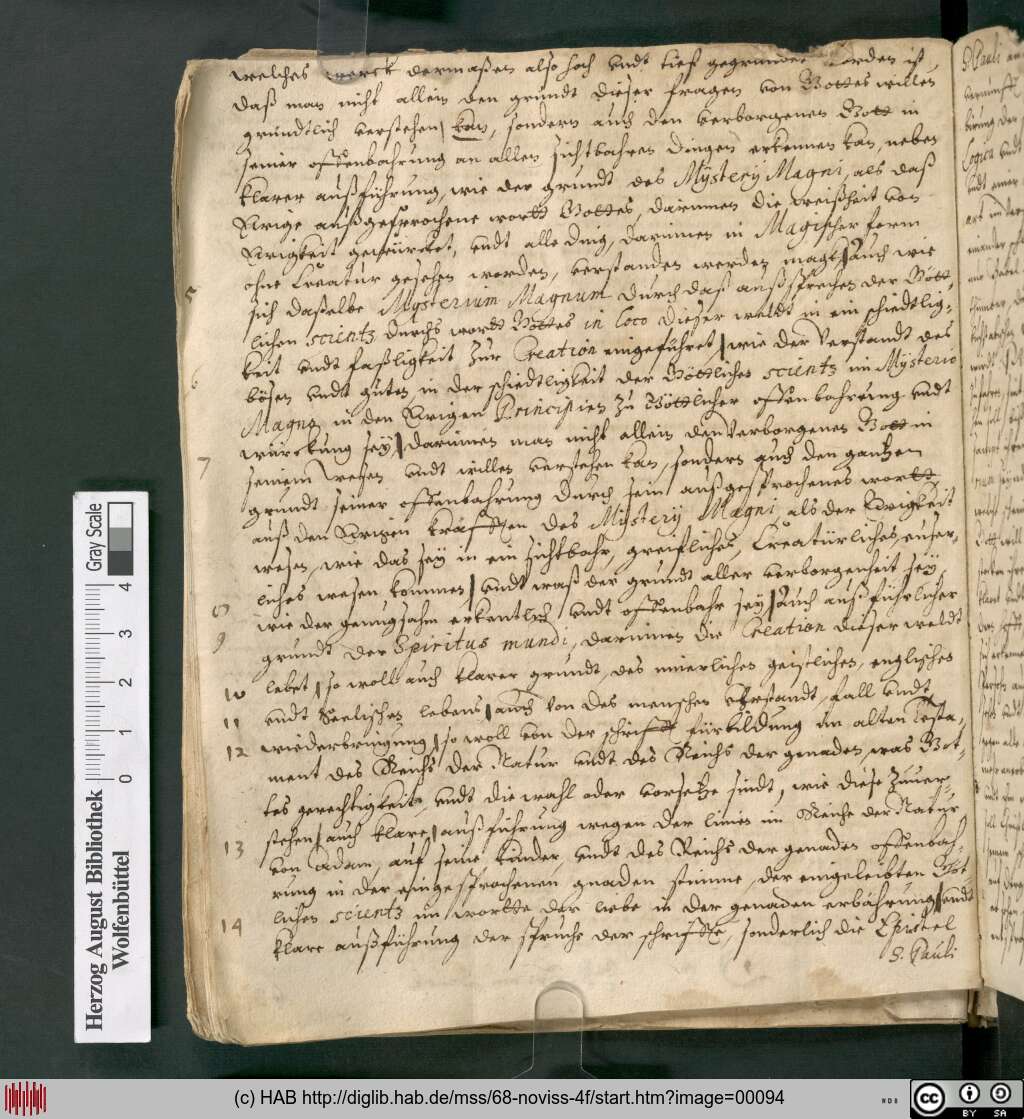 welches werck dermaßen also hoch undt tief gegründet worden ist
daß man nicht allein den grundt dieser fragen von Gottes willen
gründtlich verstehen kan, sondern auch den verborgenen Gott in
seiner offenbahrung an allen sichtbahren dingen erkennen kan, neben
klarer außführung, wie der grundt des Mÿsterÿ Magni, als daß
Ewige außgesprochene wortt Gottes, darinnen die weißheit von
Ewigkeit gewürcket, undt alle ding, darinnen in Magischer form
ohne Creatur gesehen worden, verstanden werden magk auch wie
5
sich daßelbe Mysterium Magnum durch daß außsprechen der Gött-
lichen scientz durchs wordt Gottes in loco dieser weldt in ein schiedtlig-
keit undt faßligkeit zur Creation eingeführet, wie der Verstandt des
6
bösen undt guten, in der schiedtligkeit der Göttlichen scientz im Mÿsterio
Magno in den Ewigen Principien zu Göttlicher offenbahrung undt
würckung seÿ, darinnen man nicht allein den verborgenen Gott in
7
seinem wesen undt willen verstehen kan, sondern auch den gantzen
grundt seiner offenbahrung durch sein außgesprochenes wortt,
auß den Ewigen kräfften des Mÿsterÿ Magni, als der Ewigkeit
wesen, wie das seÿ in ein sichtbahr, greifliches, Creatürliches, euser-
liches wesen kommen, undt waß der grundt aller verborgenheit seÿ,
8
wie der genugsahm erkentlich undt offenbahr seÿ, auch außführlicher
9
grundt der Spiritus mundi, darinnen die Creation dieser weldt
lebet, so woll auch klarer grundt, des innerlichen geistlichen, englischen
10
undt Seelischen lebens, auch von des menschen verstandt, fall undt
11
wiederbringung, so woll von der schrifft fürbildung im alten Testa-
12
ment des Reichs der Natur undt des Reichs der genaden, was Got-
tes gerechtigkeit, undt die wahl oder vorsetze sindt, wie diese zuver-
stehen, auch klare außführung wegen der linien im Reiche der Natur
13
von Adam, auf seine kinder, undt des Reichs der genaden offenbah-
rung in der eingesprochenen gnaden stimme, der eingeleibten Göt-
lichen scientz im wortte der liebe in der genaden erbährung, undt
14
klare außführung der sprüche der schriffte, sonderlich die Epistel
S. Pauli
Herzog August Bibliothek
Wolfenbüttel
0 1 2 3 4
Gray Scale
(c) HAB http://diglib.hab.de/mss/68-noviss-4f/start.htm?image=00094
WDB
cc BY SA